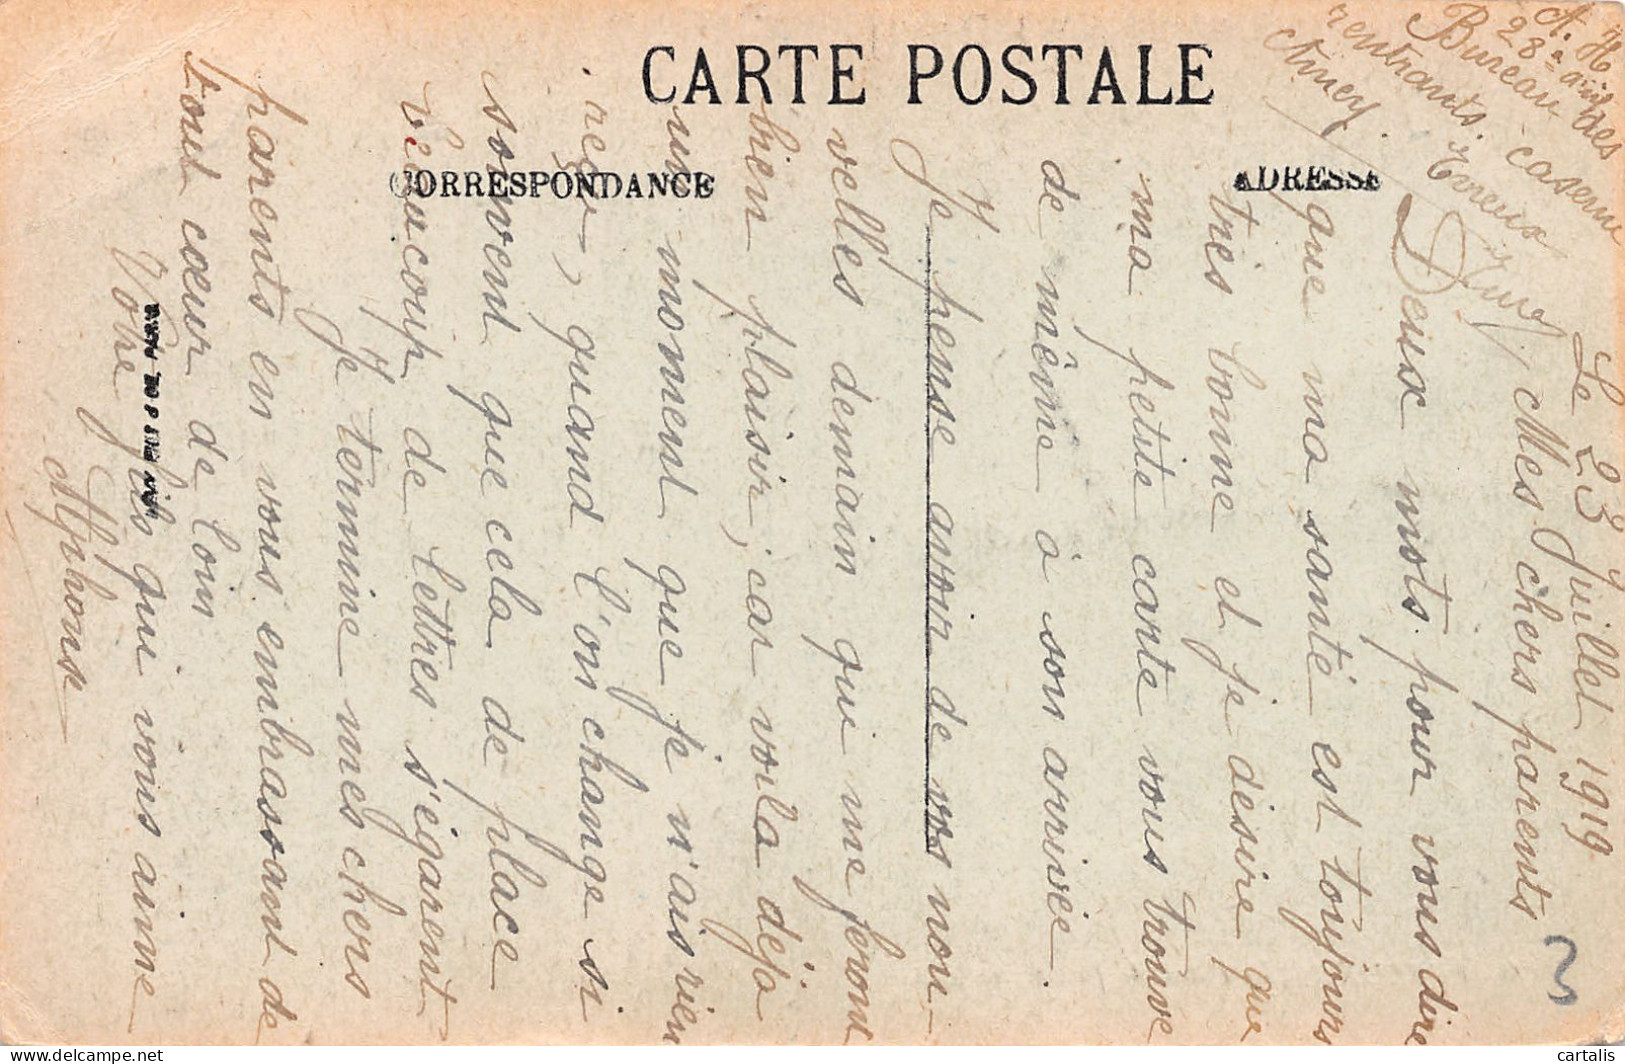 CARTE POSTALE
CORRESPONDANCE
ADRESSE
A. H.
28è
Bureau des
rentrants. caserne
Amey.
Le 23 Juillet 1919
Mes chers parents
Deux mots pour vous dire
que ma santé est toujours
très bonne et je désire que
ma petite carte vous trouve
de même à son arrivée.
Je pense avoir de vos nou-
velles demain qui me feront
bien plaisir, car voila déja
un moment que je n'ais rien
reçu, quand l'on change si
souvent que cela de place
beaucoup de lettres s'égarent
Je termine mes chers
parents en vous embrassant de
tout cœur de loin
Votre fils qui vous aime
Alphonse
3
cartalis